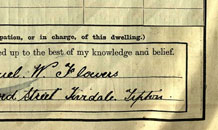 pation, or in charge, of this dwelling.)
ed up to the best of my knowledge and belief.
uel W Flowers
rd Street Tividale Tipton